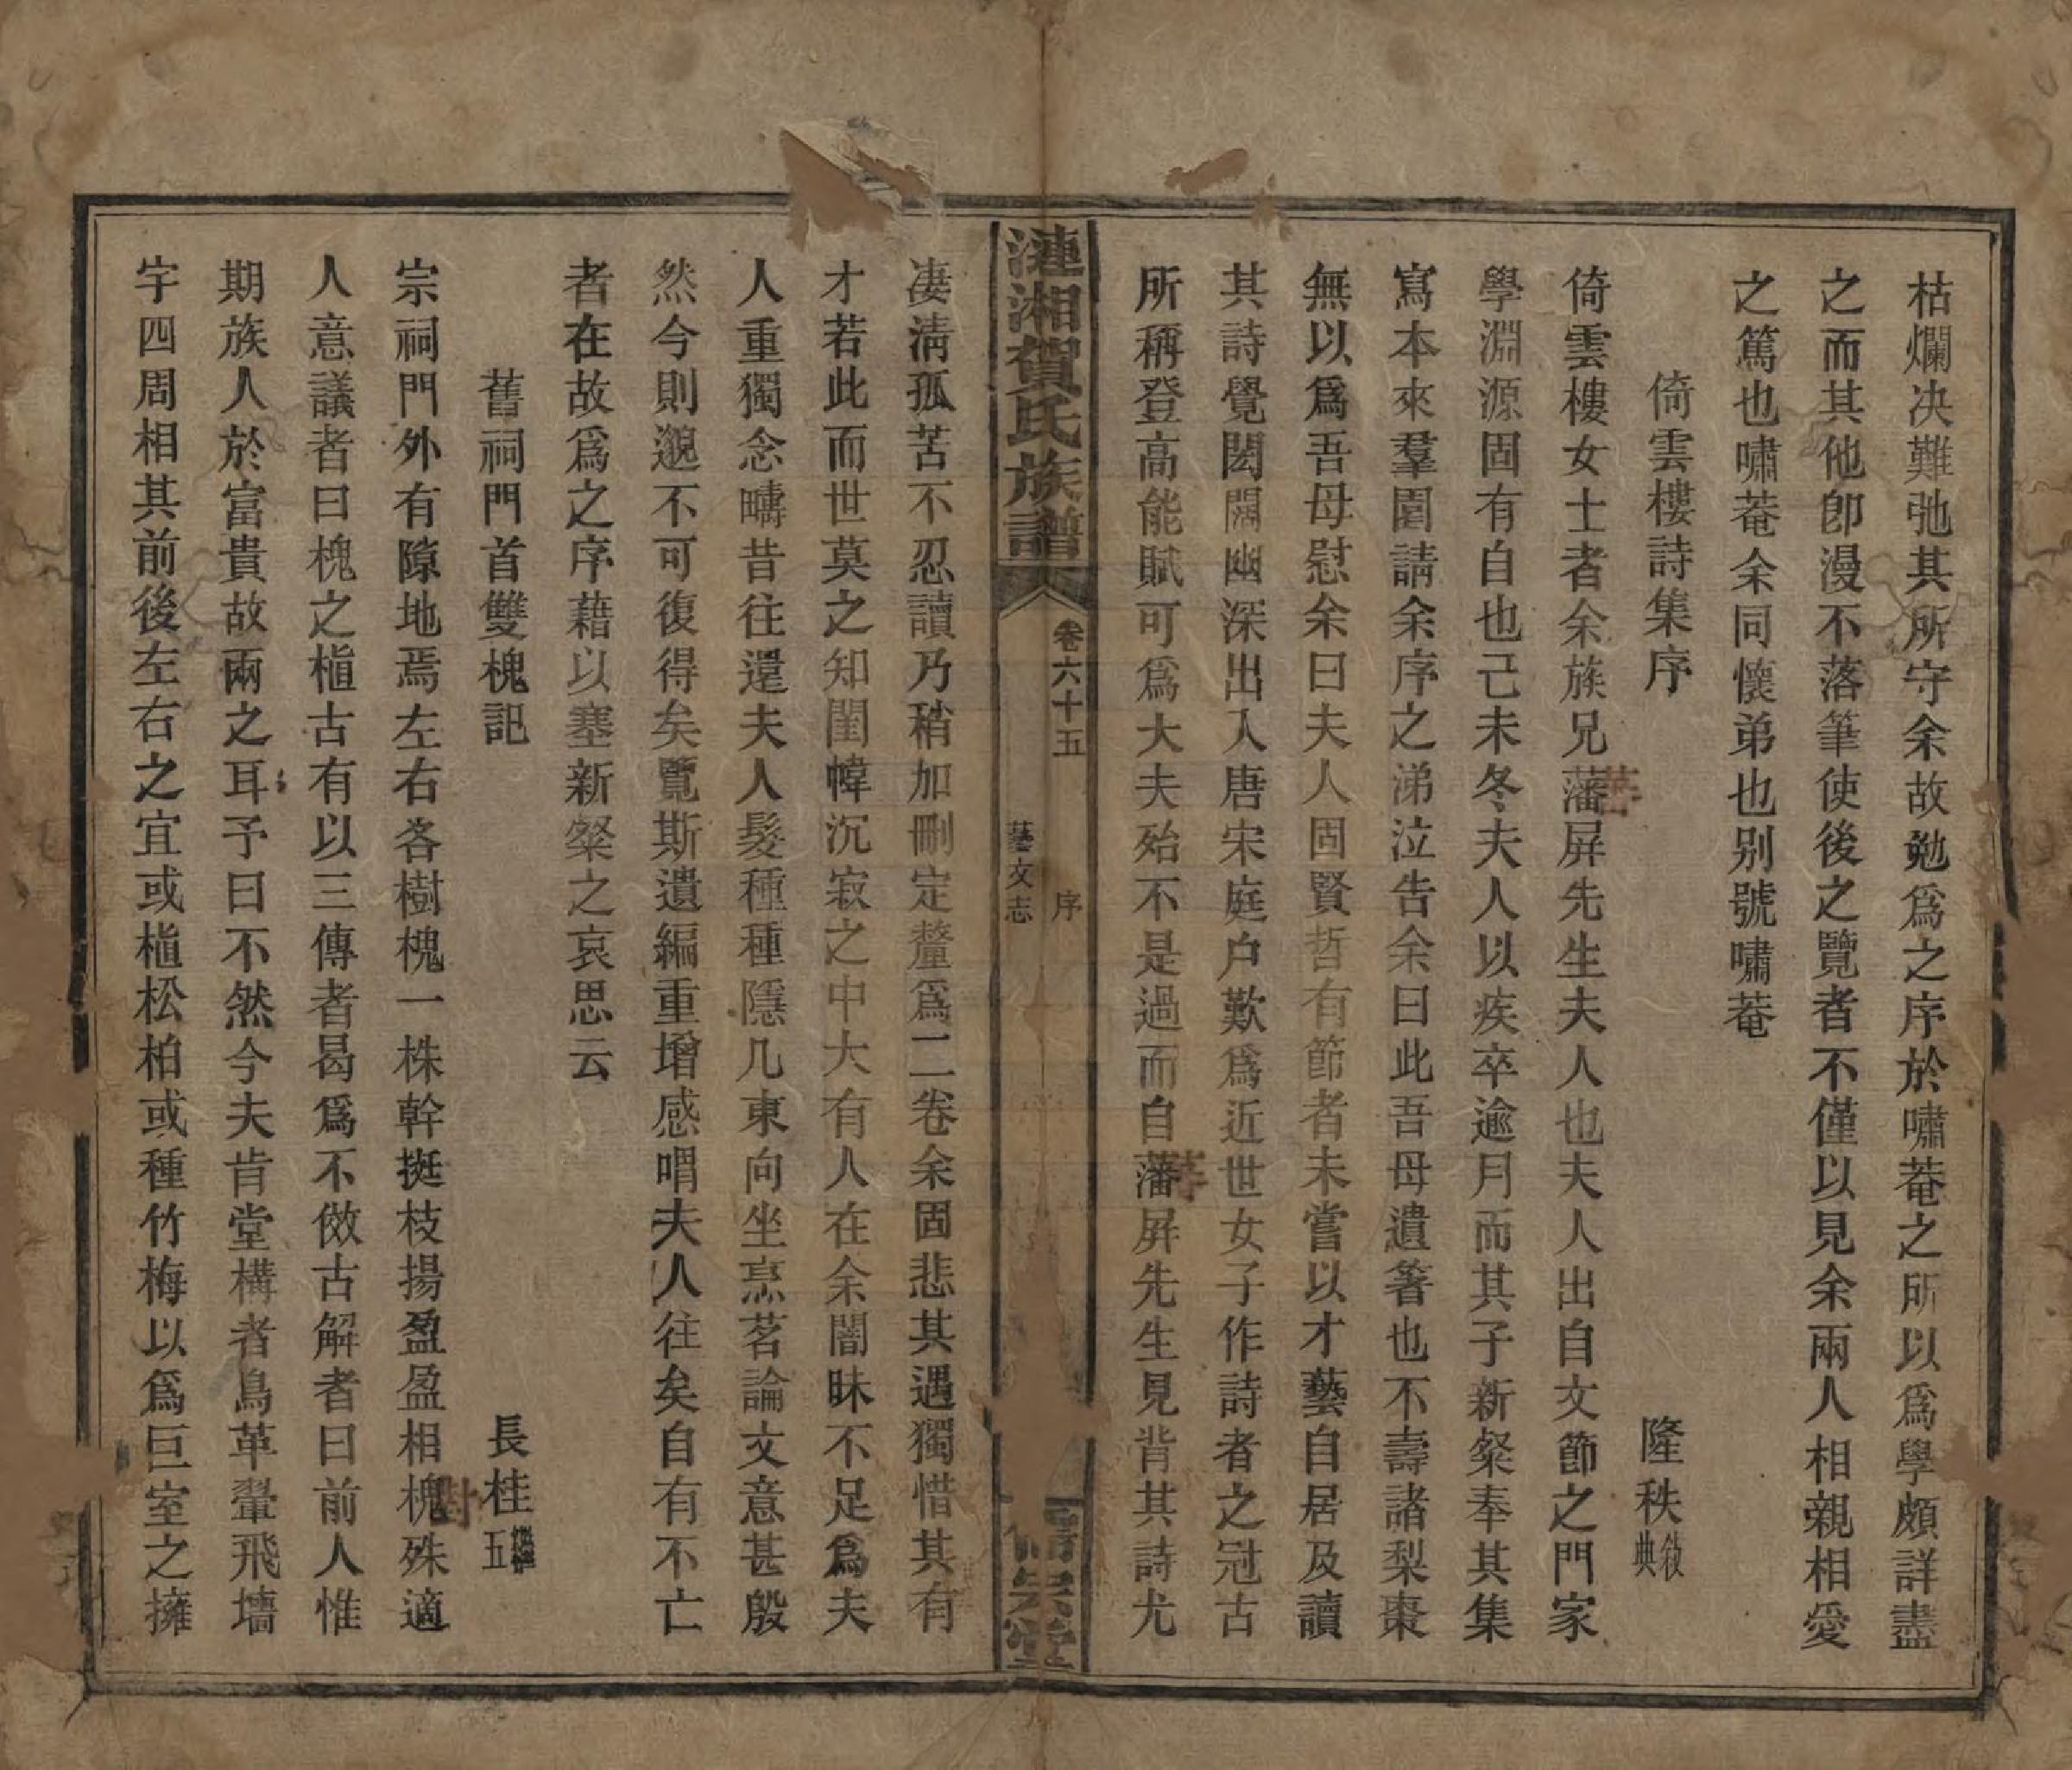 枯爛决難弛其所守余故勉爲之序於嘯菴之所以爲學頗詳盡
之而其他卽漫不落筆使後之覽者不僅以見余兩人相親相愛
之篤也嘯菴余同懷弟也別號嘯菴
倚雲樓詩集序 隆秩敘典
倚雲樓女士者余族兄藩屏先生夫人也夫人出自文節之門家
學淵源固有自也己未冬夫人以疾卒逾月而其子新粲奉其集
寫本來羣圍請余序之涕泣告余曰此吾母遺箸也不壽諸梨棗
無以爲吾母慰余曰夫人固賢哲有節者未嘗以才藝自居及讀
其詩覺閎闊幽深出入唐宋庭户歎爲近世女子作詩者之冠古
所稱登高能賦可爲大夫殆不是過而自藩屛先生見背其詩尤
漣湘賀氏族譜
卷六十五 序
藝文志
宗堂
凄淸孤苦不忍讀乃稍加刪定釐爲二卷余固悲其遇獨惜其有
才若此而世莫之知閨幃沉寂之中大有人在余闇昧不足爲夫
人重獨念疇昔往還夫人髮種種隱几東向坐烹茗論文意甚殷
然今則邈不可復得矣覽斯遺編重增感喟夫人往矣自有不亡
者在故爲之序藉以塞新粲之哀思云
舊祠門首雙槐記 長桂五
宗祠門外有隙地焉左右各樹槐一株幹挺枝揚盈盈相槐殊適
人意議者曰槐之植古有以三傳者曷爲不倣古解者曰前人惟
期族人於富貴故兩之耳予曰不然今夫肯堂構者鳥革翬飛墻
宇四周相其前後左右之宜或植松柏或種竹梅以爲巨室之擁